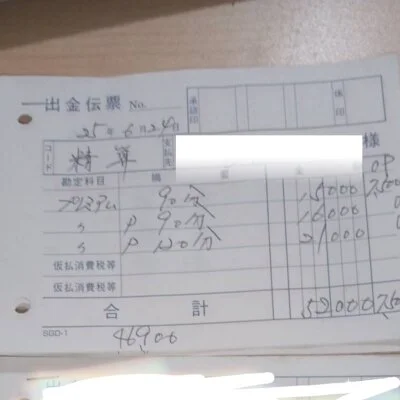 出金伝票 No.
承認印 係印
25年6月24日
コード 精算 支払先 様
勘定科目 摘要 金 OP
プレミアム 90分 15000 7,500
〃 P 90分 16000 0
〃 P 120分 21000 0
仮払消費税等
仮払消費税等
合計 52000 7,50
SGD-1
46900